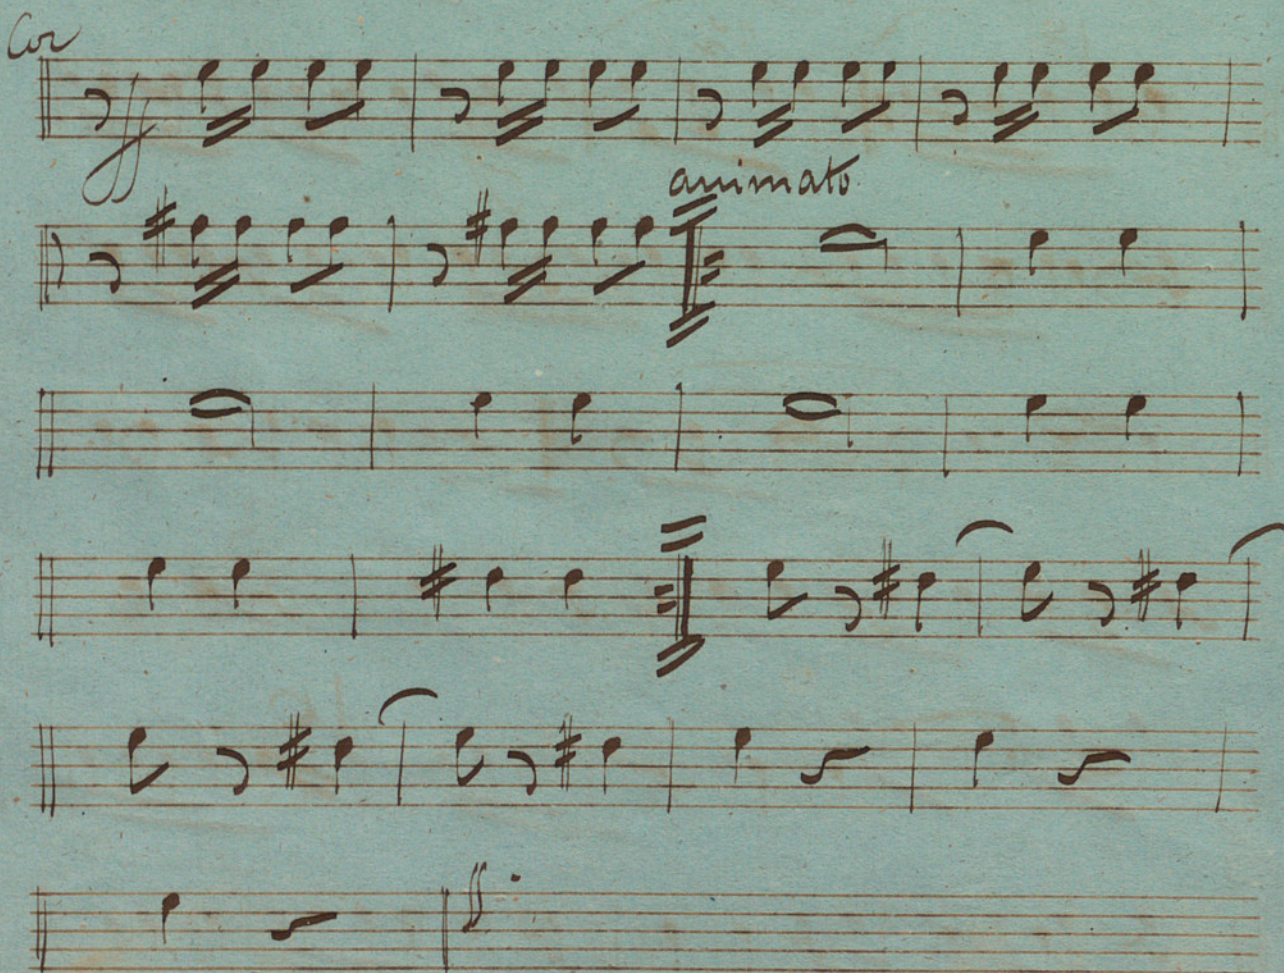 Cor
ff
animato